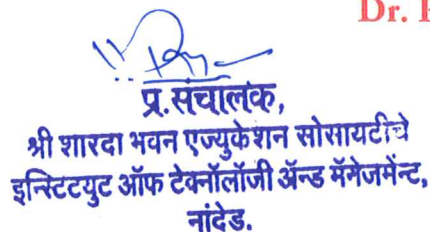 Dr.
प्र.संचालक,
श्री शारदा भवन एज्युकेशन सोसायटीचे
इन्स्टिटयुट ऑफ टेक्नॉलॉजी ॲन्ड मॅनेजमेंट,
नांदेड.